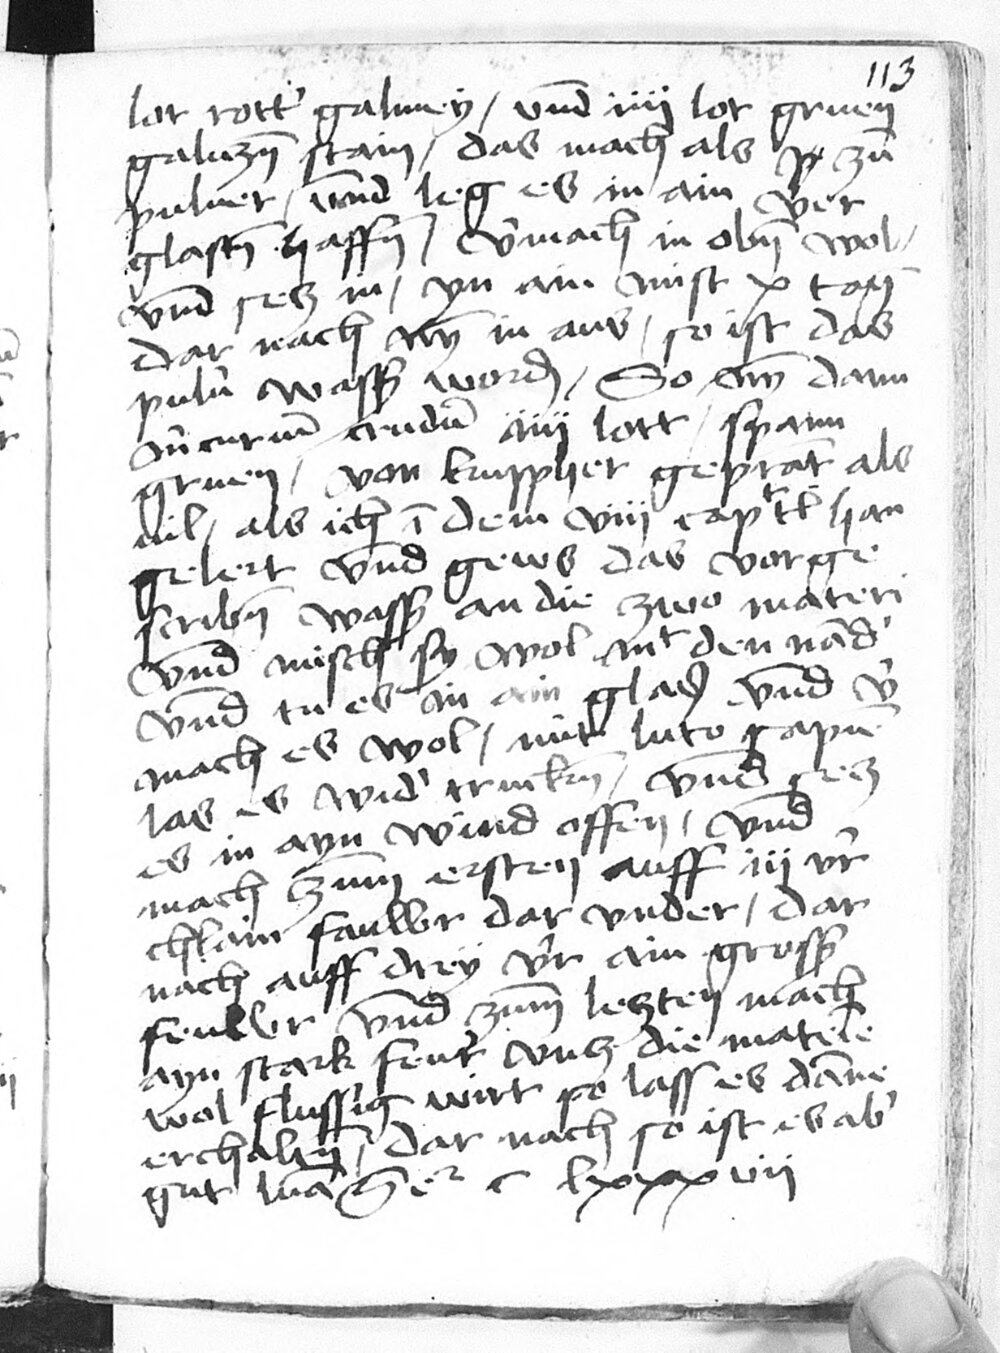 113
lot rott' galmey / vnd iiij lot gruen
galiczn̄ stain / das mach als zu
puluer / vnd leg es in ain ver
glastn̄ haffn̄ / v'mach in obn̄ wol /
vnd secz in / yn ain mist x tag
dar nach nȳ in aus / so ist das
pulu' wasß word / So nȳ dann
m'curiū crudū iiij lott / spann
gruen / von kuppher geprāt als
uil / als ich ī dem viij captl han
gelert vnd geus das vorge
scribn̄ wasß an die zwo materi
vnd misch sy wol mt den nād'
vnd tu es in ain glas vnd v'
mach es wol / mit luto sapiīe
las es wid' truckn̄ / vnd secz
es in ayn wind offen / vnd
mach zum ersten auff iij vr
chlain faullr dar vnder / dar
nach auff drey vr ain grosß
feullr vnd zum leczten mach
ayn stark feur vncz die materie
wol flussig wirt so lass es dāne
erchaltn̄ / dar nach so ist es ab'
gut luna c lxxxvij